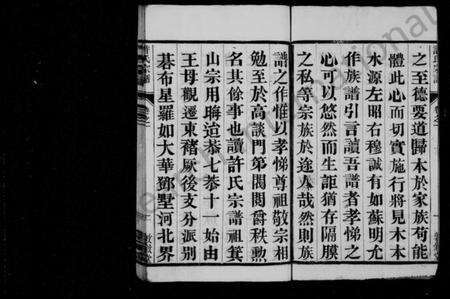 之至德要道歸本於家族苟能
體此心而切實施行將見木本
水源左昭右穆誠有如蘇明允
作族譜引言讀吾譜者孝悌之
心可以悠然而生詎猶存隔膜
之私等宗族於途人哉然則族
譜之作惟以孝悌尊祖敬宗相
勉至於高談門第閥閱爵秩勲
名其餘事也讀許氏宗譜祖箕
山宗用聨迨恭七恭十一始由
王母觀遷東褚厥後支分派別
碁布星羅如大華鄧墅河北界
許氏宗譜